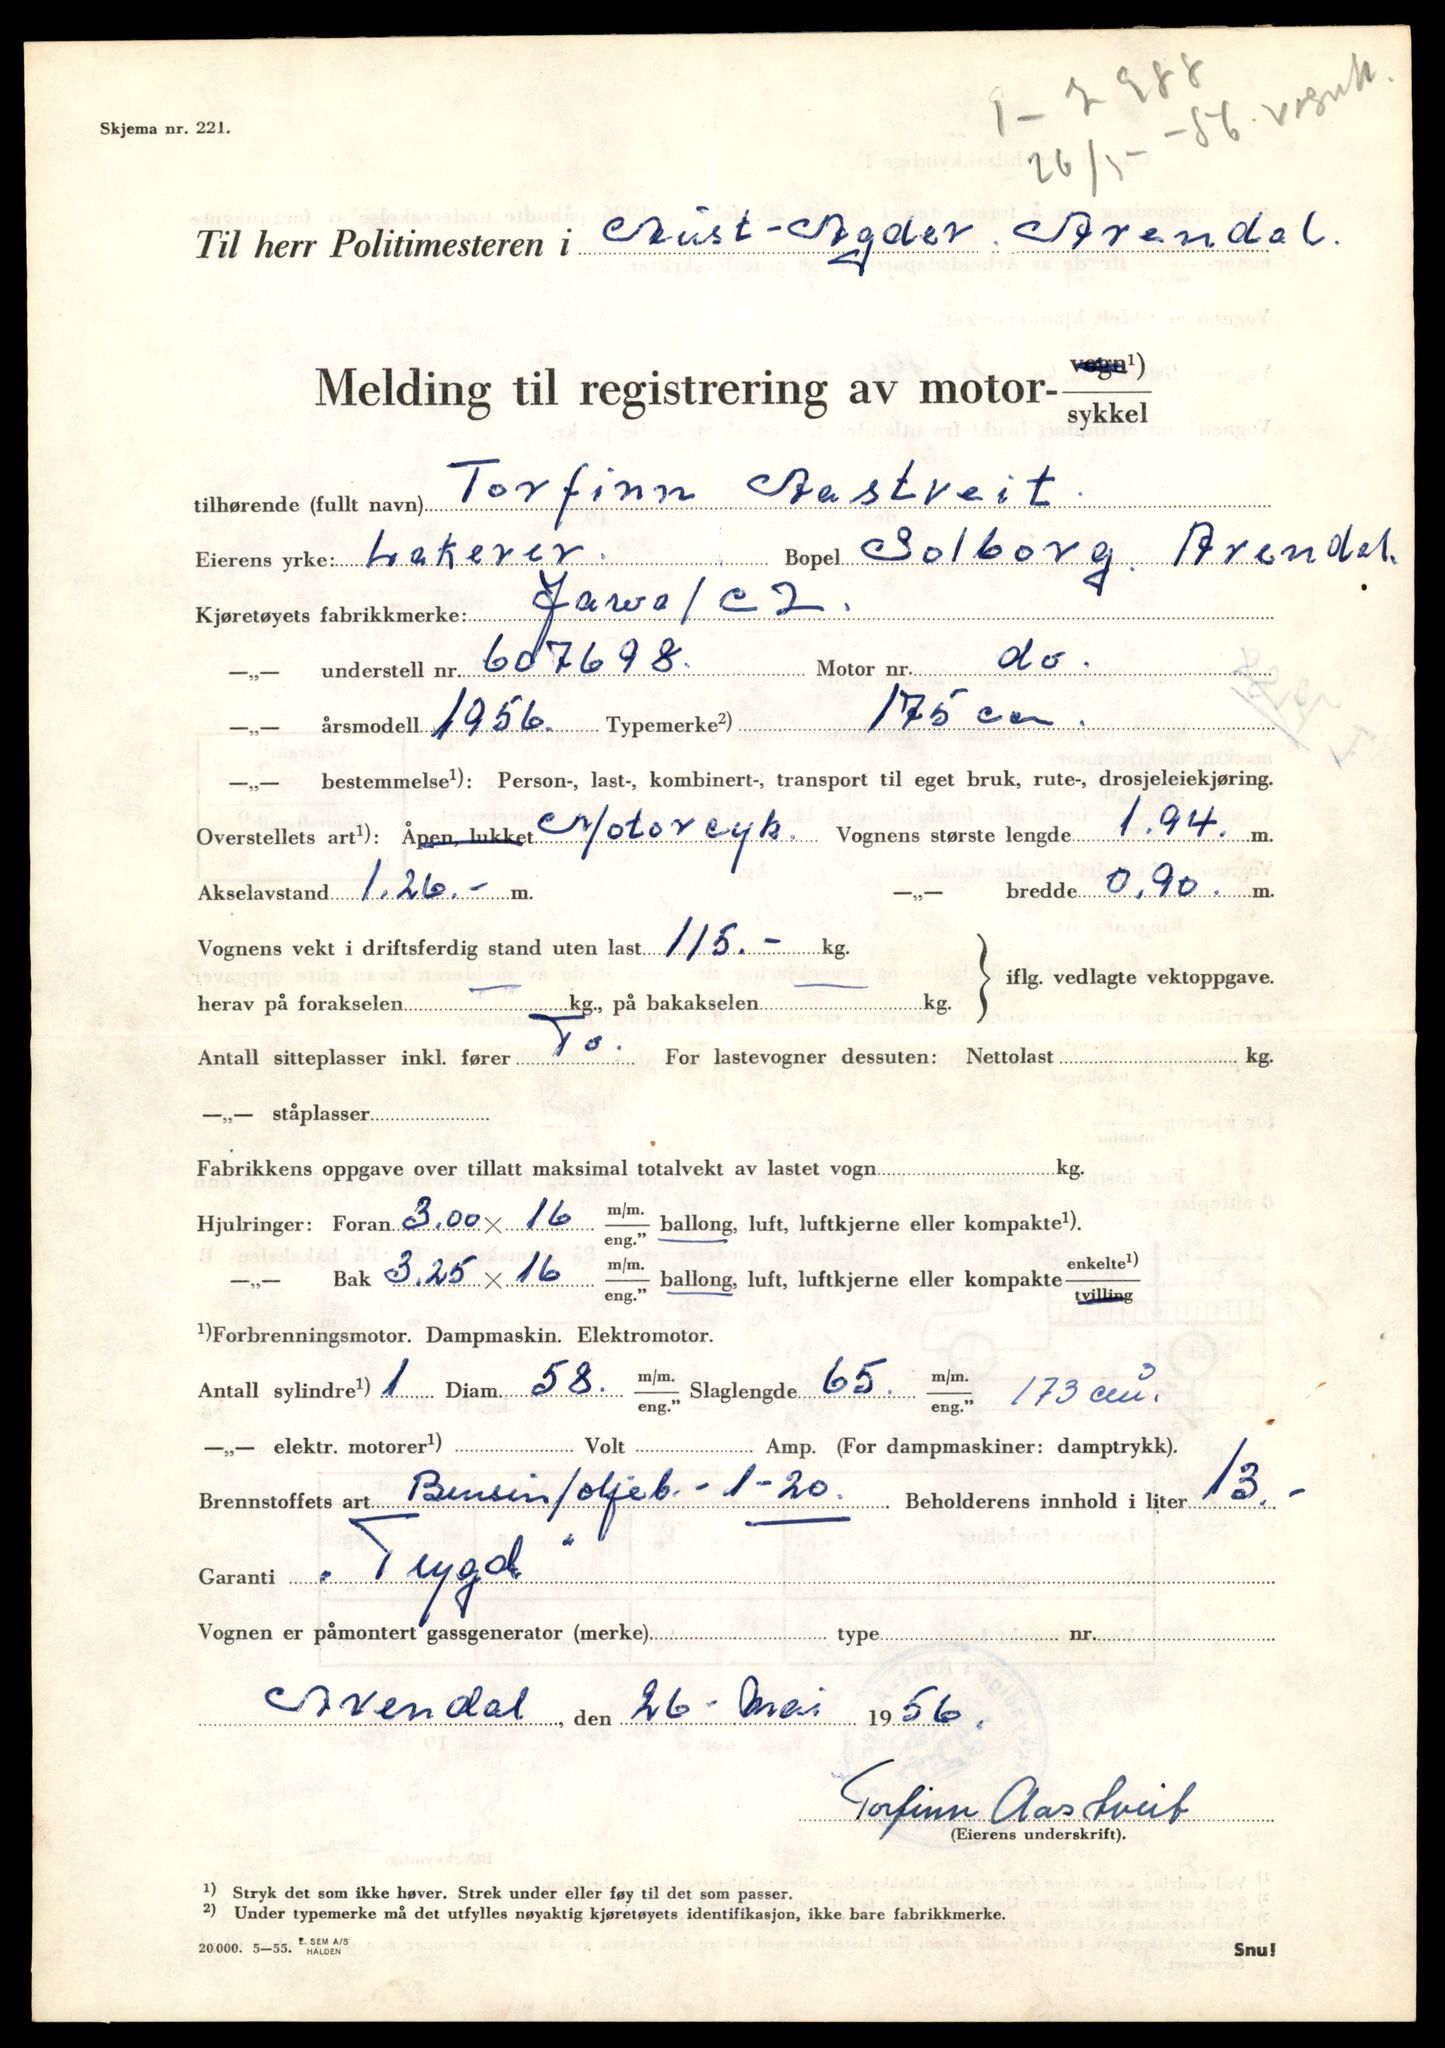 Skjema nr. 221.
26/5 - -56 vognk.
Til herr Politimesteren i Aust-Agder. Arendal.
Melding til registrering av motor- vogn¹)
sykkel
tilhørende (fullt navn) Torfinn Aastveit.
Eierens yrke: Lakerer. Bopel Solborg. Arendal.
Kjøretøyets fabrikkmerke: Jawa/CZ.
—„— understell nr. 607698. Motor nr. do.
—„— årsmodell 1956. Typemerke²) 175 ccm.
—„— bestemmelse¹): Person-, last-, kombinert-, transport til eget bruk, rute-, drosjeleiekjøring.
Overstellets art¹): Åpen, lukket Motorcyk. Vognens største lengde 1.94. m.
Akselavstand 1.26.- m. —„— bredde 0.90. m.
Vognens vekt i driftsferdig stand uten last 115.- kg.
herav på forakselen — kg., på bakakselen — kg. } iflg. vedlagte vektoppgave.
Antall sitteplasser inkl. fører To. For lastevogner dessuten: Nettolast kg.
—„— ståplasser
Fabrikkens oppgave over tillatt maksimal totalvekt av lastet vogn kg.
Hjulringer: Foran 3.00 × 16 m/m. eng.” ballong, luft, luftkjerne eller kompakte¹).
—„— Bak 3.25 × 16 m/m. eng.” ballong, luft, luftkjerne eller kompakte enkelte¹) tvilling
¹)Forbrenningsmotor. Dampmaskin. Elektromotor.
Antall sylindre¹) 1 Diam. 58. m/m. eng.” Slaglengde 65. m/m. eng.” 173 cm³.
—„— elektr. motorer¹) Volt Amp. (For dampmaskiner: damptrykk).
Brennstoffets art Bensin/oljeb. - 1-20. Beholderens innhold i liter 13.-
Garanti „Trygd“
Vognen er påmontert gassgenerator (merke) type nr.
Arendal, den 26- Mai 1956.
Torfinn Aastveit
(Eierens underskrift).
¹) Stryk det som ikke høver. Strek under eller føy til det som passer.
²) Under typemerke må det utfylles nøyaktig kjøretøyets identifikasjon, ikke bare fabrikkmerke.
20000. 5—55. E. SEM A/S HALDEN
Snu!